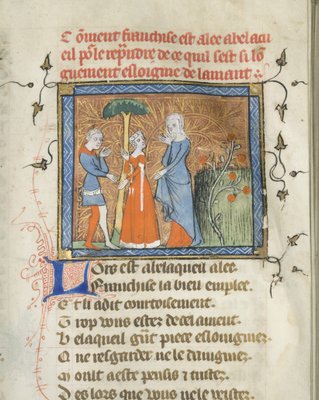 Coment franchise est alee abelacu
eil pole reprendre de ce quil sest si lo
guement esloingie de lamant
Lors est abelaqueil alee
Franchise la bien emplee
Et li a dit courtoisement
Trop vous estes de cel ament
Belaqueil grant piece eslouignies
Que resgarder ne le daingniez
Mout a este pensis et tristes
Des lors que vous ne le veistes